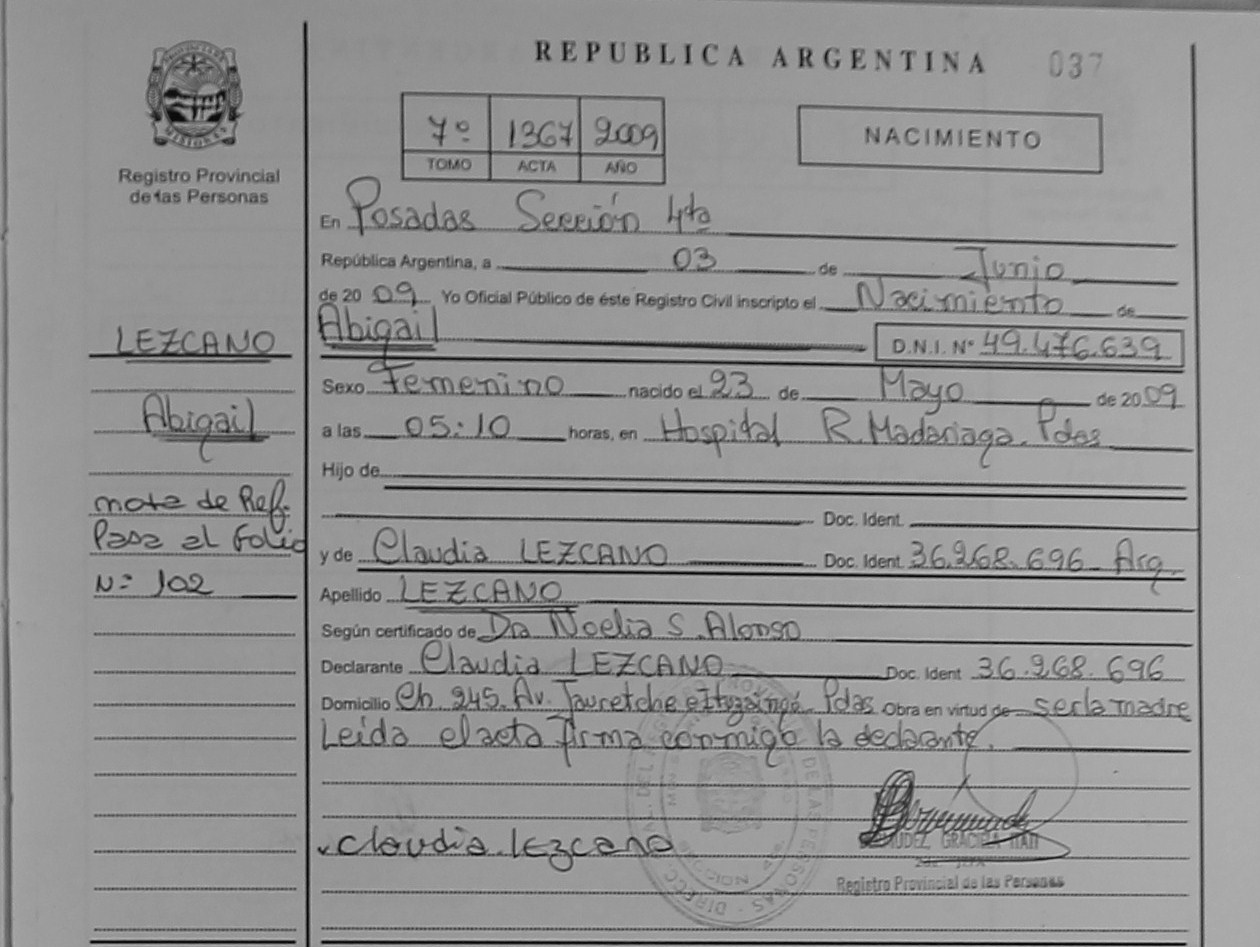 REPUBLICA ARGENTINA 037
PROVINCIA DE MISIONES
Registro Provincial
de las Personas
7º 1367 2009
TOMO ACTA AÑO
NACIMIENTO
En Posadas Sección 4ta
República Argentina, a 03 de Junio
de 2009 Yo Oficial Público de éste Registro Civil inscripto el Nacimiento de
Abigail D.N.I. Nº 49.476.639
Sexo Femenino nacido el 23 de Mayo de 2009
a las 05:10 horas, en Hospital R. Madariaga. Pdas
Hijo de
Doc. Ident.
y de Claudia LEZCANO Doc. Ident. 36.268.696 Arg.
Apellido LEZCANO
Según certificado de Dra Noelia S. Alonso
Declarante Claudia LEZCANO Doc. Ident 36.268.696
Domicilio Ch. 245. Av. Jauretche e Ituzaingó. Pdas Obra en virtud de ser la madre
Leída el acta firma conmigo la declarante.
Claudia Lezcano
GRACIELA ITATI
Registro Provincial de las Personas
LEZCANO
Abigail
nota de Ref.
Pasa al Folio
Nº 102